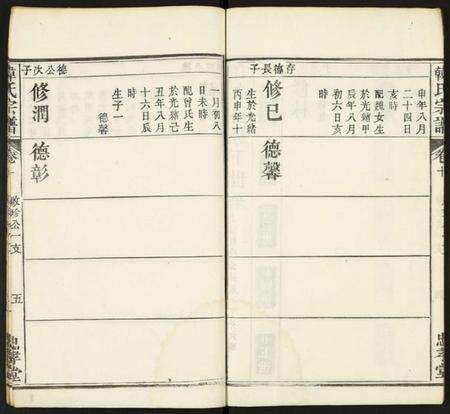 韓氏宗譜
卷十
忠孝堂
申年八月
二十四日
亥時
配魏女生
於光緒甲
辰年八月
初六日亥
時
存德長子
修巳 德馨
生於光緒
丙申年十
一月初八
日未時
配曾氏生
於光緒己
丑年八月
十六日辰
時
生子一
德馨
德公次子
修潤 德彰
韓氏宗譜
卷十
公一支
五
忠孝堂